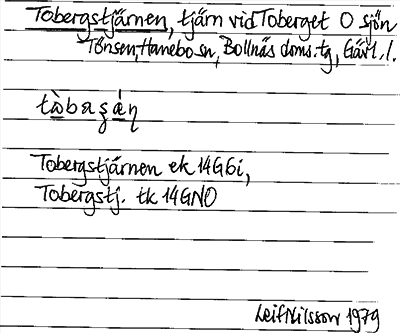 Tobergstjärnen, tjärn vid Toberget O sjön
Tönsen, Hanebo sn, Bollnäs doms.tg, Gävl. l.
Tobergstjärnen ek 14G6i,
Tobergstj. tk 14GNO
Leif Nilsson 1979